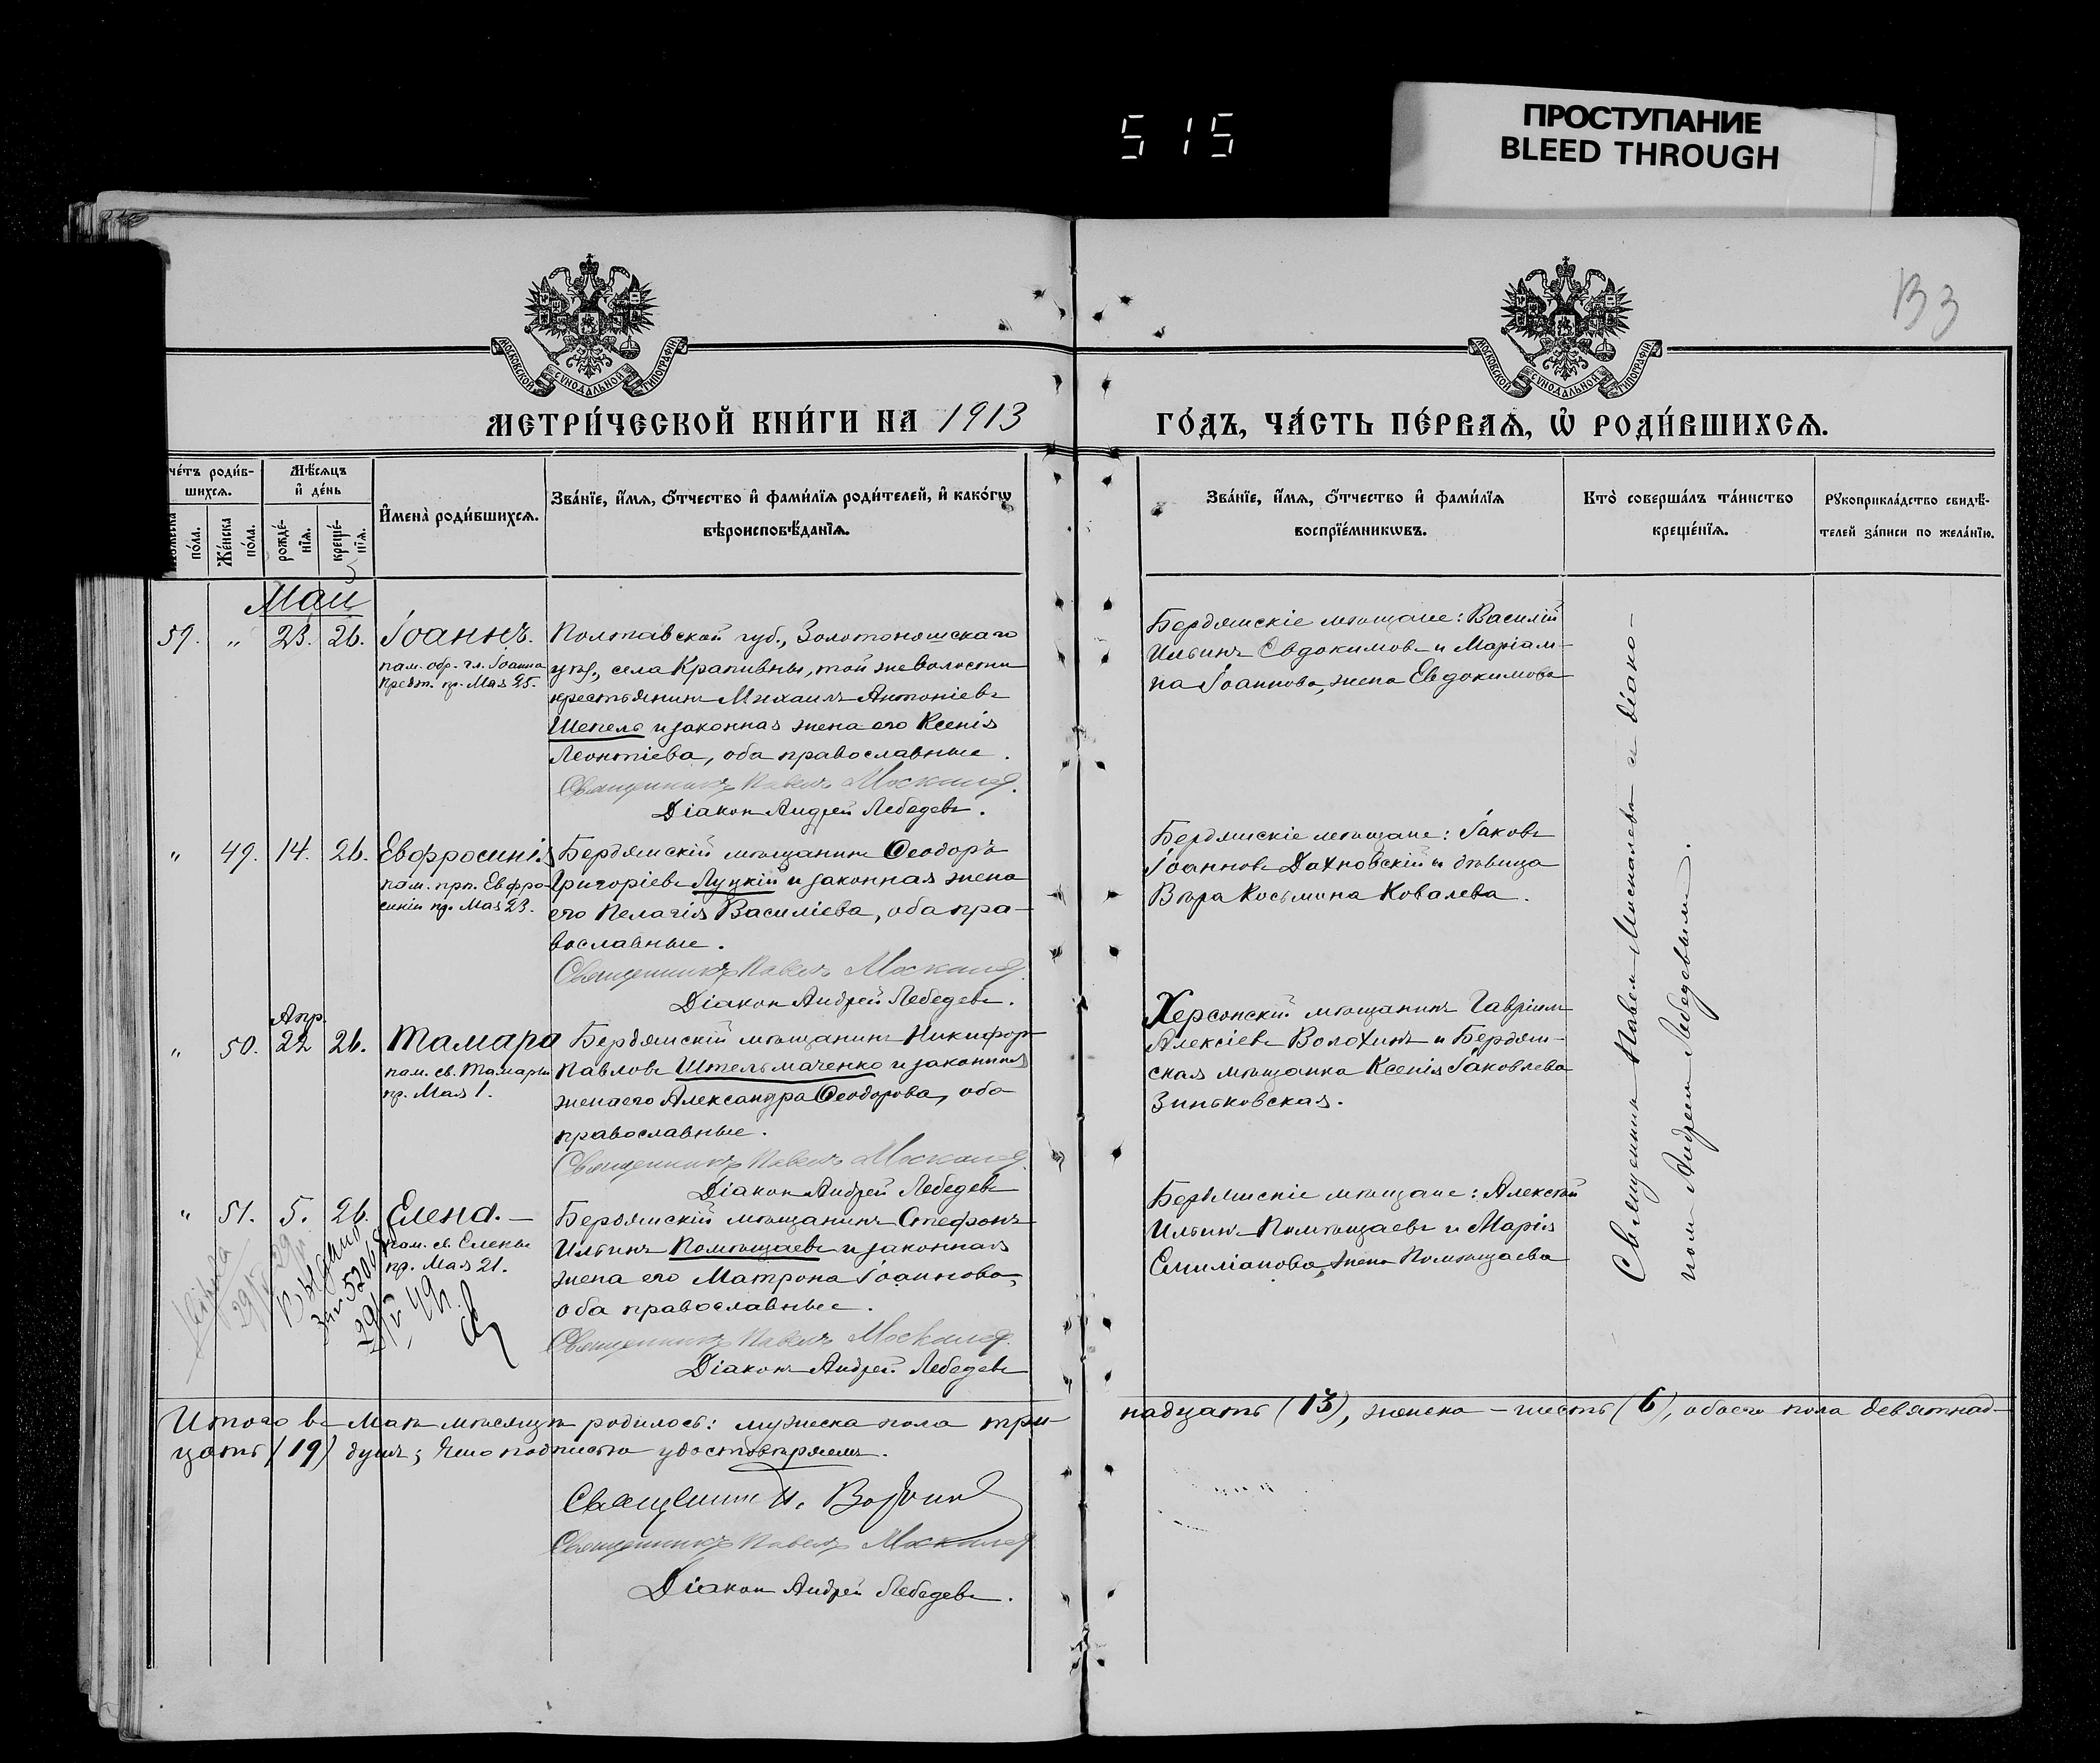 515
ПРОСТУПАНИЕ
BLEED THROUGH
МОСКОВСКОЙ СѴНОДАЛЬНОЙ ТИПОГРАФІИ
МОСКОВСКОЙ СѴНОДАЛЬНОЙ ТИПОГРАФІИ
МЕТРИ́ЧЕСКОЙ КНИ́ГИ НА 1913
ГО́ДЪ, ЧА́СТЬ ПЕ́РВАѦ, Ѿ РОДИ́ВШИХСѦ.
че́тъ роди́в-
шихсѧ.
по́ла.
Же́нска
по́ла.
Мѣ́сѧцъ
и҆ де́нь
рожде́-
нїѧ.
креще́-
нїѧ.
И҆мена̀ роди́вшихсѧ.
Зва́нїе, и҆́мѧ, ѻ҆́тчество и҆ фами́лїѧ роди́телей, и҆ како́гѡ
вѣроисповѣ́данїѧ.
Зва́нїе, и҆́мѧ, ѻ҆́тчество и҆ фами́лїѧ
воспрїе́мникѡвъ.
Кто̀ соверша́лъ та́инство
креще́нїѧ.
Рꙋкоприкла́дство свидѣ́-
телей за́писи по жела́нїю.
Май
59. " 23. 26. Іоаннъ.
пам. обр. гл. Іоанна
Крест. пр. Мая 25.
Полтавской губ., Золотоношскаго
уѣз., села Крапивны, той же волости
крестьянинъ Михаилъ Антоніевъ
Шепель и законная жена его Ксенія
Леонтіева, оба православные.
Священникъ Павелъ
Діаконъ Андрей Лебедевъ.
Бердянскіе мѣщане: Василій
Ильинъ Евдокимовъ и Маріам-
на Іоаннова, жена Евдокимова
" 49. 14. 26. Евфросинія
пам. прп. Евфро-
синіи пр. Мая 23.
Бердянскій мѣщанинъ Ѳеодоръ
Григоріевъ Луцкій и законная жена
его Пелагія Василіева, оба пра-
вославные.
Священникъ Павелъ
Діаконъ Андрей Лебедевъ.
Бердянскіе мѣщане: Іаковъ
Іоанновъ Дахновскій и дѣвица
Вѣра Косьмина Ковалева.
Апр.
" 50. 22 26. Тамара
пам. св. Тамары
пр. Мая 1.
Бердянскій мѣщанинъ Никифоръ
Павловъ Штельмаченко и законная
жена его Александра Ѳеодорова, оба
православные.
Священникъ Павелъ
Діаконъ Андрей Лебедевъ
Херсонскій мѣщанинъ Гавріилъ
Алексіевъ Волохинъ и Бердян-
ская мѣщанка Ксенія Іаковлева
Зиньковская.
" 51. 5. 26. Елена. –
пам. св. Елены
пр. Мая 21.
Бердянскій мѣщанинъ Стефанъ
Ильинъ Помѣщаевъ и законная
жена его Матрона Іоаннова,
оба православные.
Священникъ Павелъ
Діаконъ Андрей Лебедевъ
Бердянскіе мѣщане: Алексѣй
Ильинъ Помѣщаевъ и Марія
Емиліанова, жена Помѣщаева
Священникъ Павелъ и діако-
номъ Андреемъ Лебедевымъ.
Итого въ Маѣ мѣсяцѣ родилось: мужеска пола три-
надцать (13), женска – шесть (6), обоего пола девятнад-
цать (19) душъ; чего подписью удостовѣряемъ.
Священникъ
Священникъ Павелъ
Діаконъ Андрей Лебедевъ.